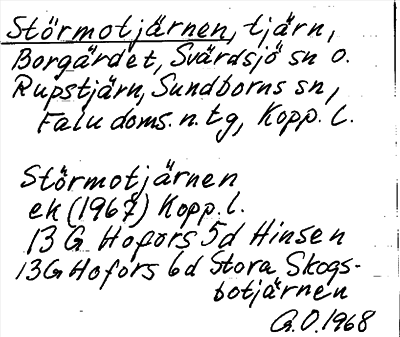 Störmotjärnen, tjärn,
Borgärdet, Svärdsjö sn o.
Rupstjärn, Sundborns sn,
Falu doms. n. tg, Kopp. l.
Störmotjärnen
ek (1967) Kopp. l.
13 G Hofors 5d Hinsen
13G Hofors 6d Stora Skogs-
botjärnen
G.O. 1968